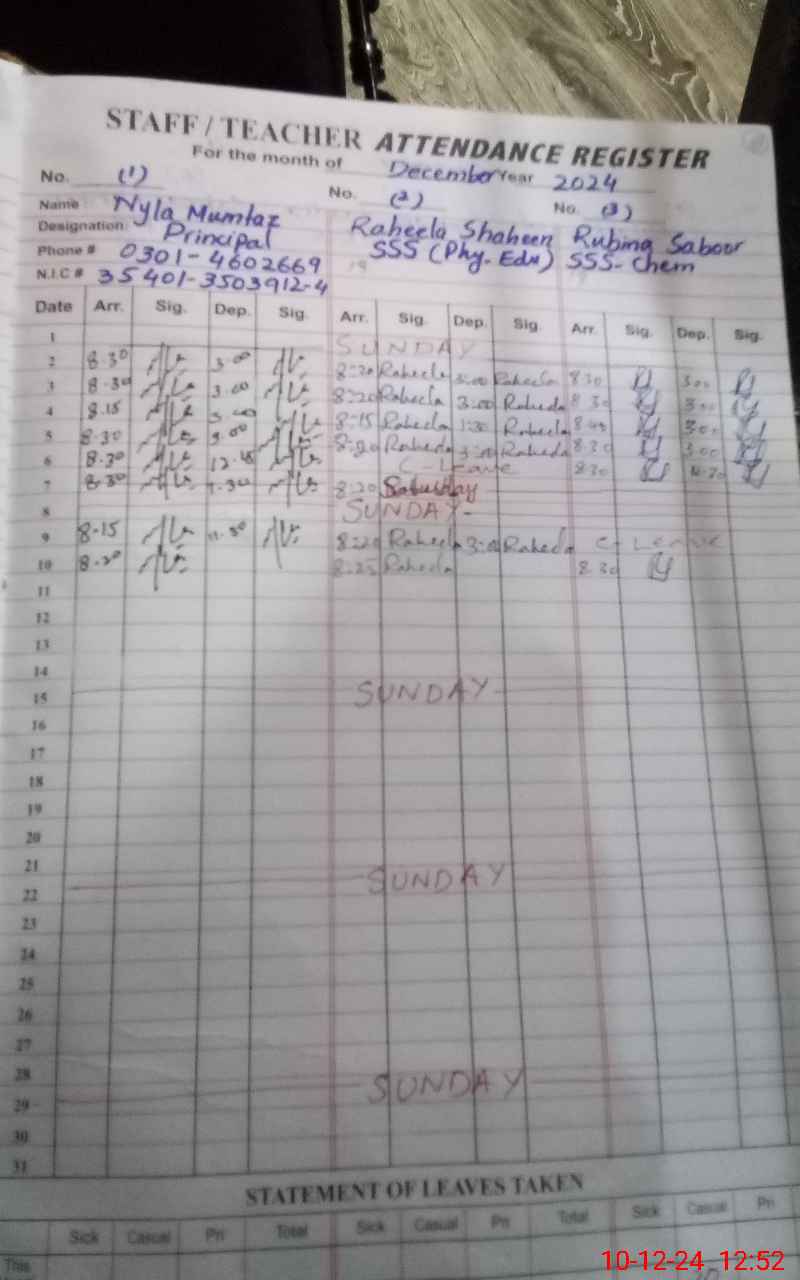 STAFF / TEACHER ATTENDANCE REGISTER
For the month of December Year 2024
No. (1) No. (2) No. (3)
Name Nyla Mumtaz Raheela Shaheen Rubina Saboor
Designation Principal SSS (Phy. Edu) SSS- Chem
Phone # 0301-4602669
N.I.C # 35401-3503912-4
Date Arr. Sig. Dep. Sig. Arr. Sig. Dep. Sig. Arr. Sig. Dep. Sig.
1 SUNDAY
2 8.30 3.00 8:20 Raheela 3:00 Raheela 8 30 3 00
3 8.30 3.00 8:20 Raheela 3:00 Raheela 8 30 3 00
4 8.15 3.00 8:15 Raheela 1:30 Raheela 8 45 3 00
5 8.30 3.00 8:20 Raheela 3:00 Raheela 8.30 3 00
6 8.30 C-Leave 8 30
7 8.30 8:20 Saturday
8 SUNDAY
9 8.15 11.30 8:20 Raheela 3:0 Raheela C-Leave
10 8.20 8:25 Raheela 8 30
11
12
13
14
15 SUNDAY
16
17
18
19
20
21
22 SUNDAY
23
24
25
26
27
28
29 SUNDAY
30
31
STATEMENT OF LEAVES TAKEN
Sick Casual Pri Total Sick Casual Pri Total Sick Casual Pri
This
10-12-24 12:52